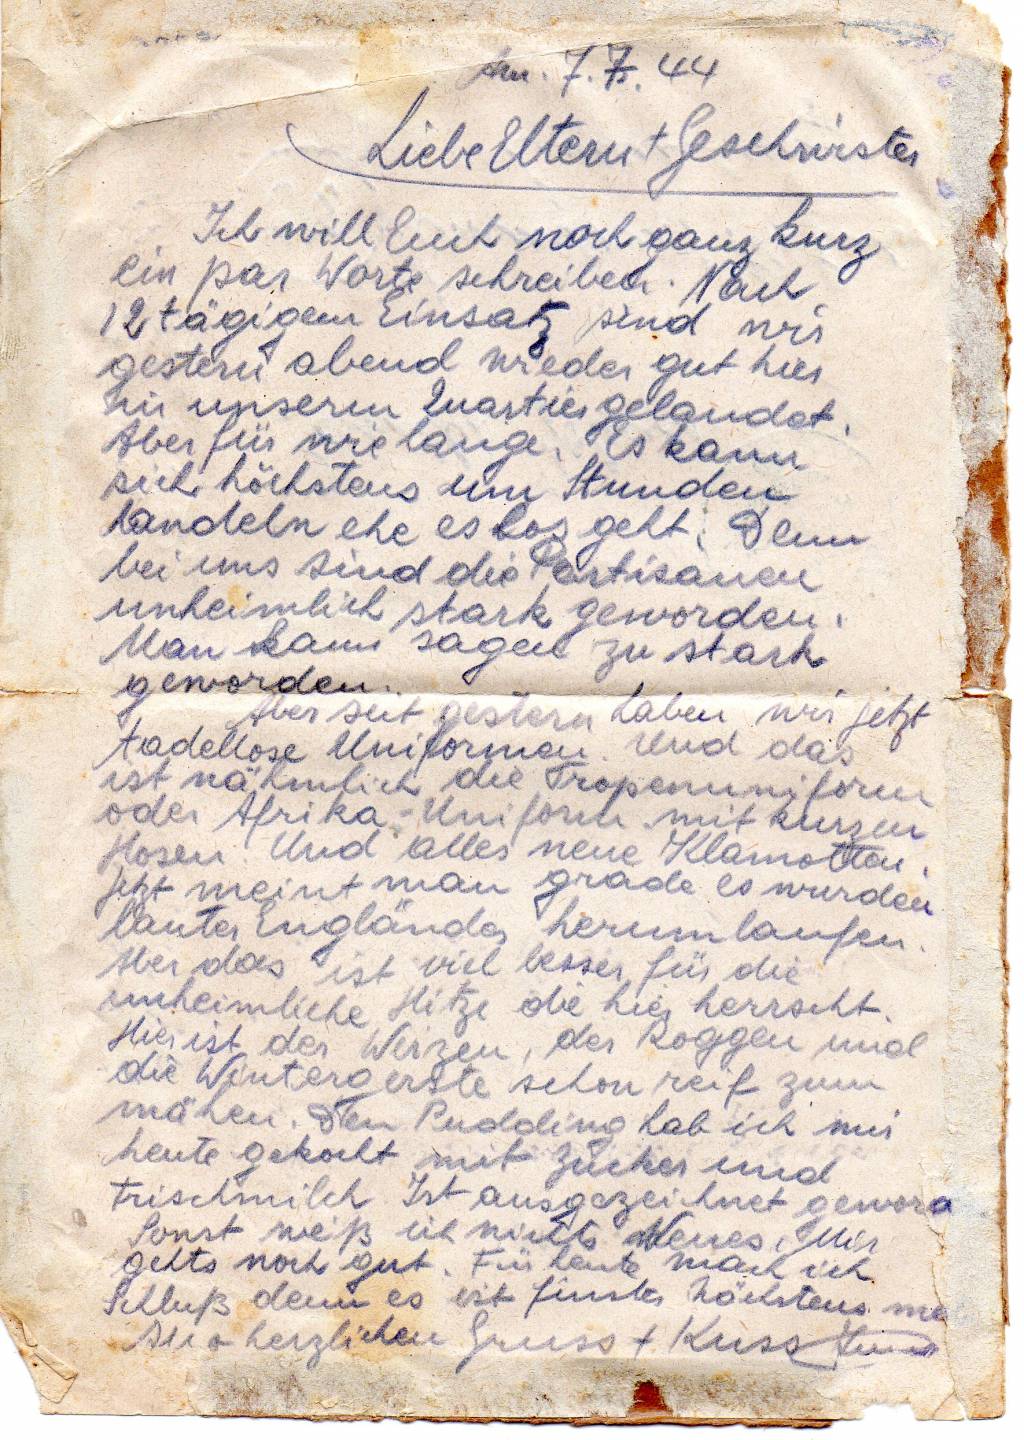 Am. 7.7.44
Liebe Eltern + Geschwister
Ich will Euch noch ganz kurz
ein par Worte schreiben. Nach
12 tägigem Einsatz sind wir
gestern abend wieder gut hier
in unserm Quartier gelandet.
Aber für wie lange. Es kann
sich höchstens um Stunden
handeln ehe es los geht. Denn
bei uns sind die Partisanen
unheimlich stark geworden.
Man kann sagen zu stark
geworden.
Aber seit gestern haben wir jetzt
tadellose Uniformen. Und das
ist nähmlich die Tropenuniform
oder Afrika-Uniform mit kurzen
Hosen. Und alles neue Klamotten.
Jetzt meint man grade es wurden
lauter Engländer herumlaufen.
Aber das ist viel besser für die
unheimliche Hitze die hier herrscht.
Hier ist der Weizen, der Roggen und
die Wintergerste schon reif zum
mähen. Den Pudding hab ich mir
heute gekocht mit Zucker und
Frischmilch Ist ausgezeichnet geword
Sonst weiß ich nichts Neues. Mir
gehts noch gut. Für heute mach ich
Schluß denn es ist finster höchstens
Also herzlichen Gruss + Kuss